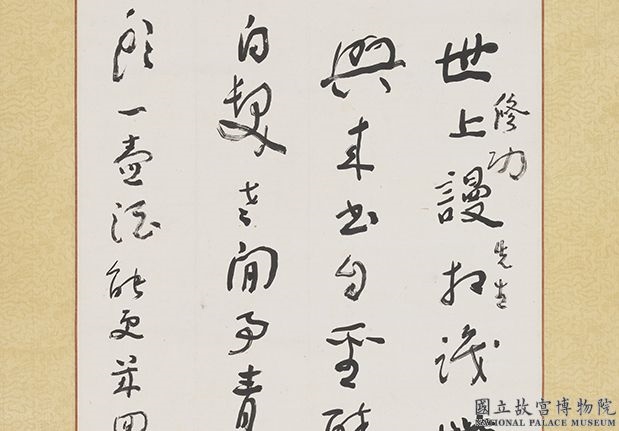 世上謾相識
修功先生
興來書自聖醉
白髮老閒事青
頭一壺酒能更幾回
國立故宮博物院
NATIONAL PALACE MUSEUM